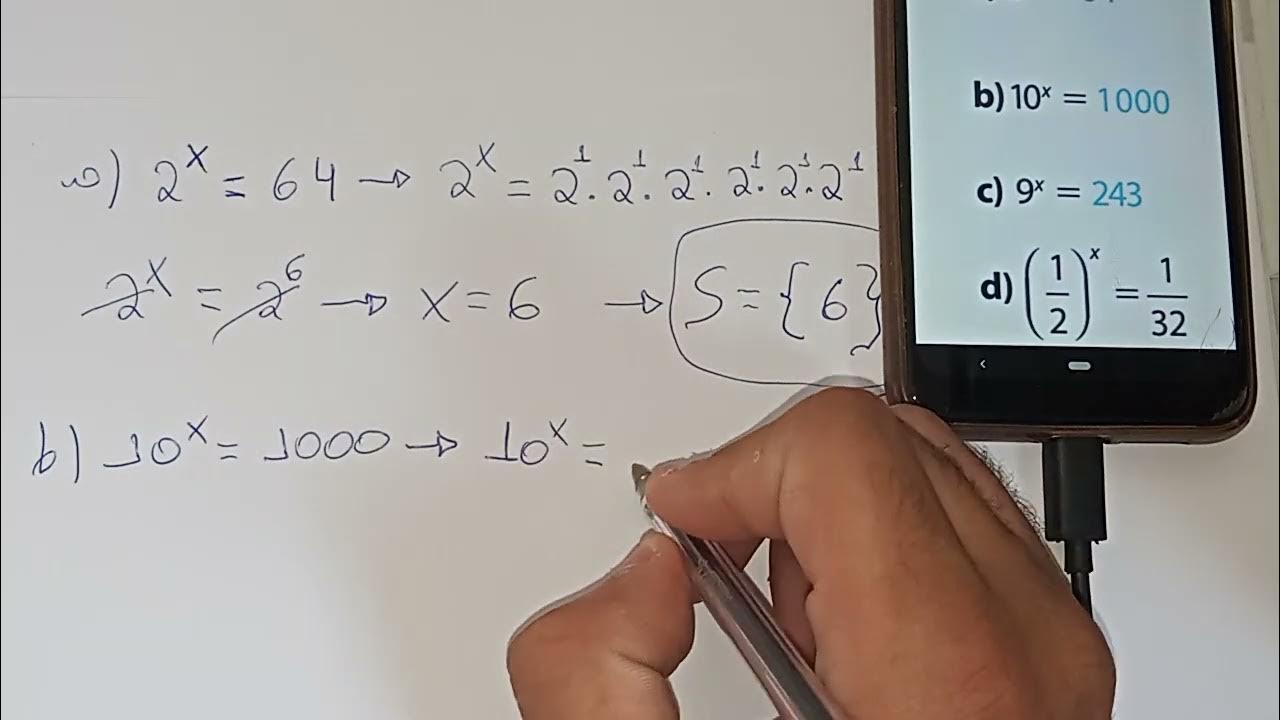 a) 2^x = 64 → 2^x = 2^1 . 2^1 . 2^1 . 2^1 . 2^1 . 2^1
2^x = 2^6 → x = 6 → S = {6}
b) 10^x = 1000 → 10^x =
b) 10^x = 1000
c) 9^x = 243
d) (1/2)^x = 1/32